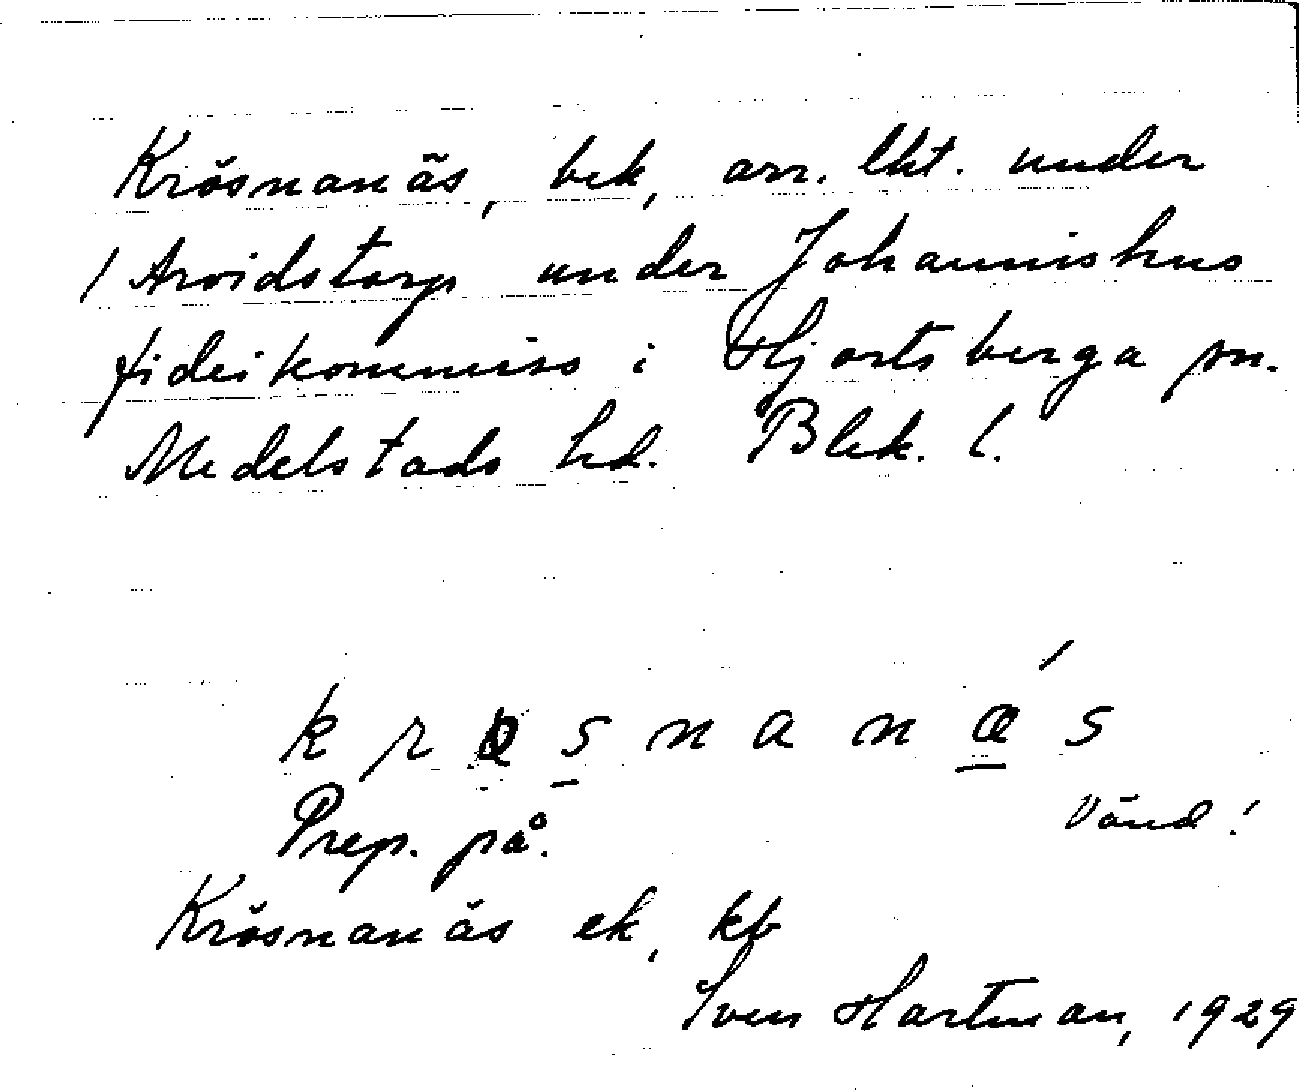 Krösnanäs, bek, arr. lht. under
/ Arvidstorp under Johannishus
fideikommiss i Hjortsberga sn.
Medelstads hd. Blek. l.
krøsnanæ´s
Vänd!
Prep. på.
Krösnanäs ek, kb
Sven Hartman, 1929